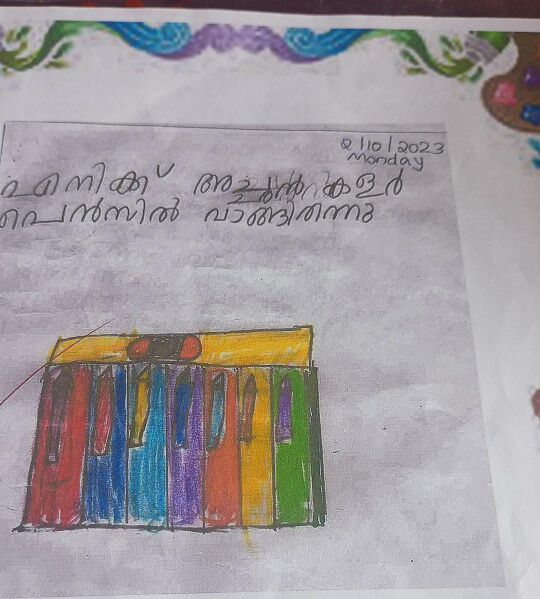 2/10/2023
Monday
എനിക്ക് അച്ഛൻ കളർ
പെൻസിൽ വാങ്ങിതന്നു